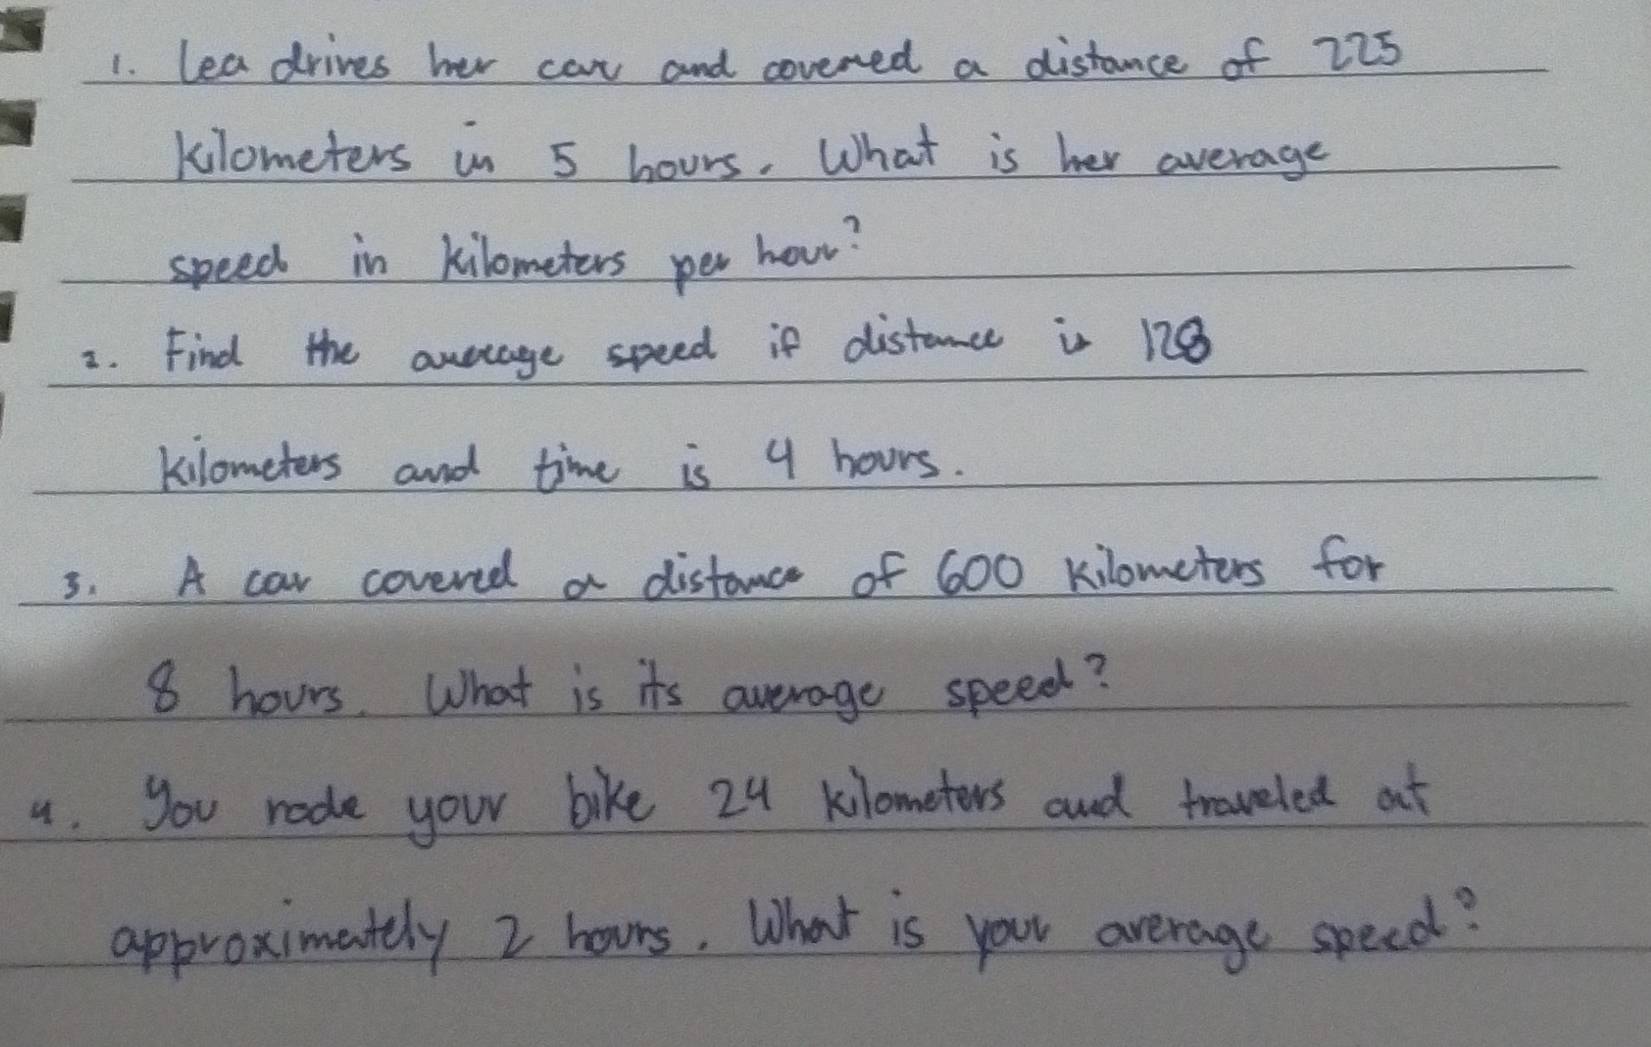 1. Lea drives her car and covered a distance of 225
kilometers in 5 hours. What is her average
speed in kilometers per hour?
2. Find the average speed if distance is 128
kilometers and time is 4 hours.
3. A car covered a distance of 600 kilometers for
8 hours. What is its average speed?
4. You rode your bike 24 kilometers and traveled at
approximately 2 hours. What is your average speed?